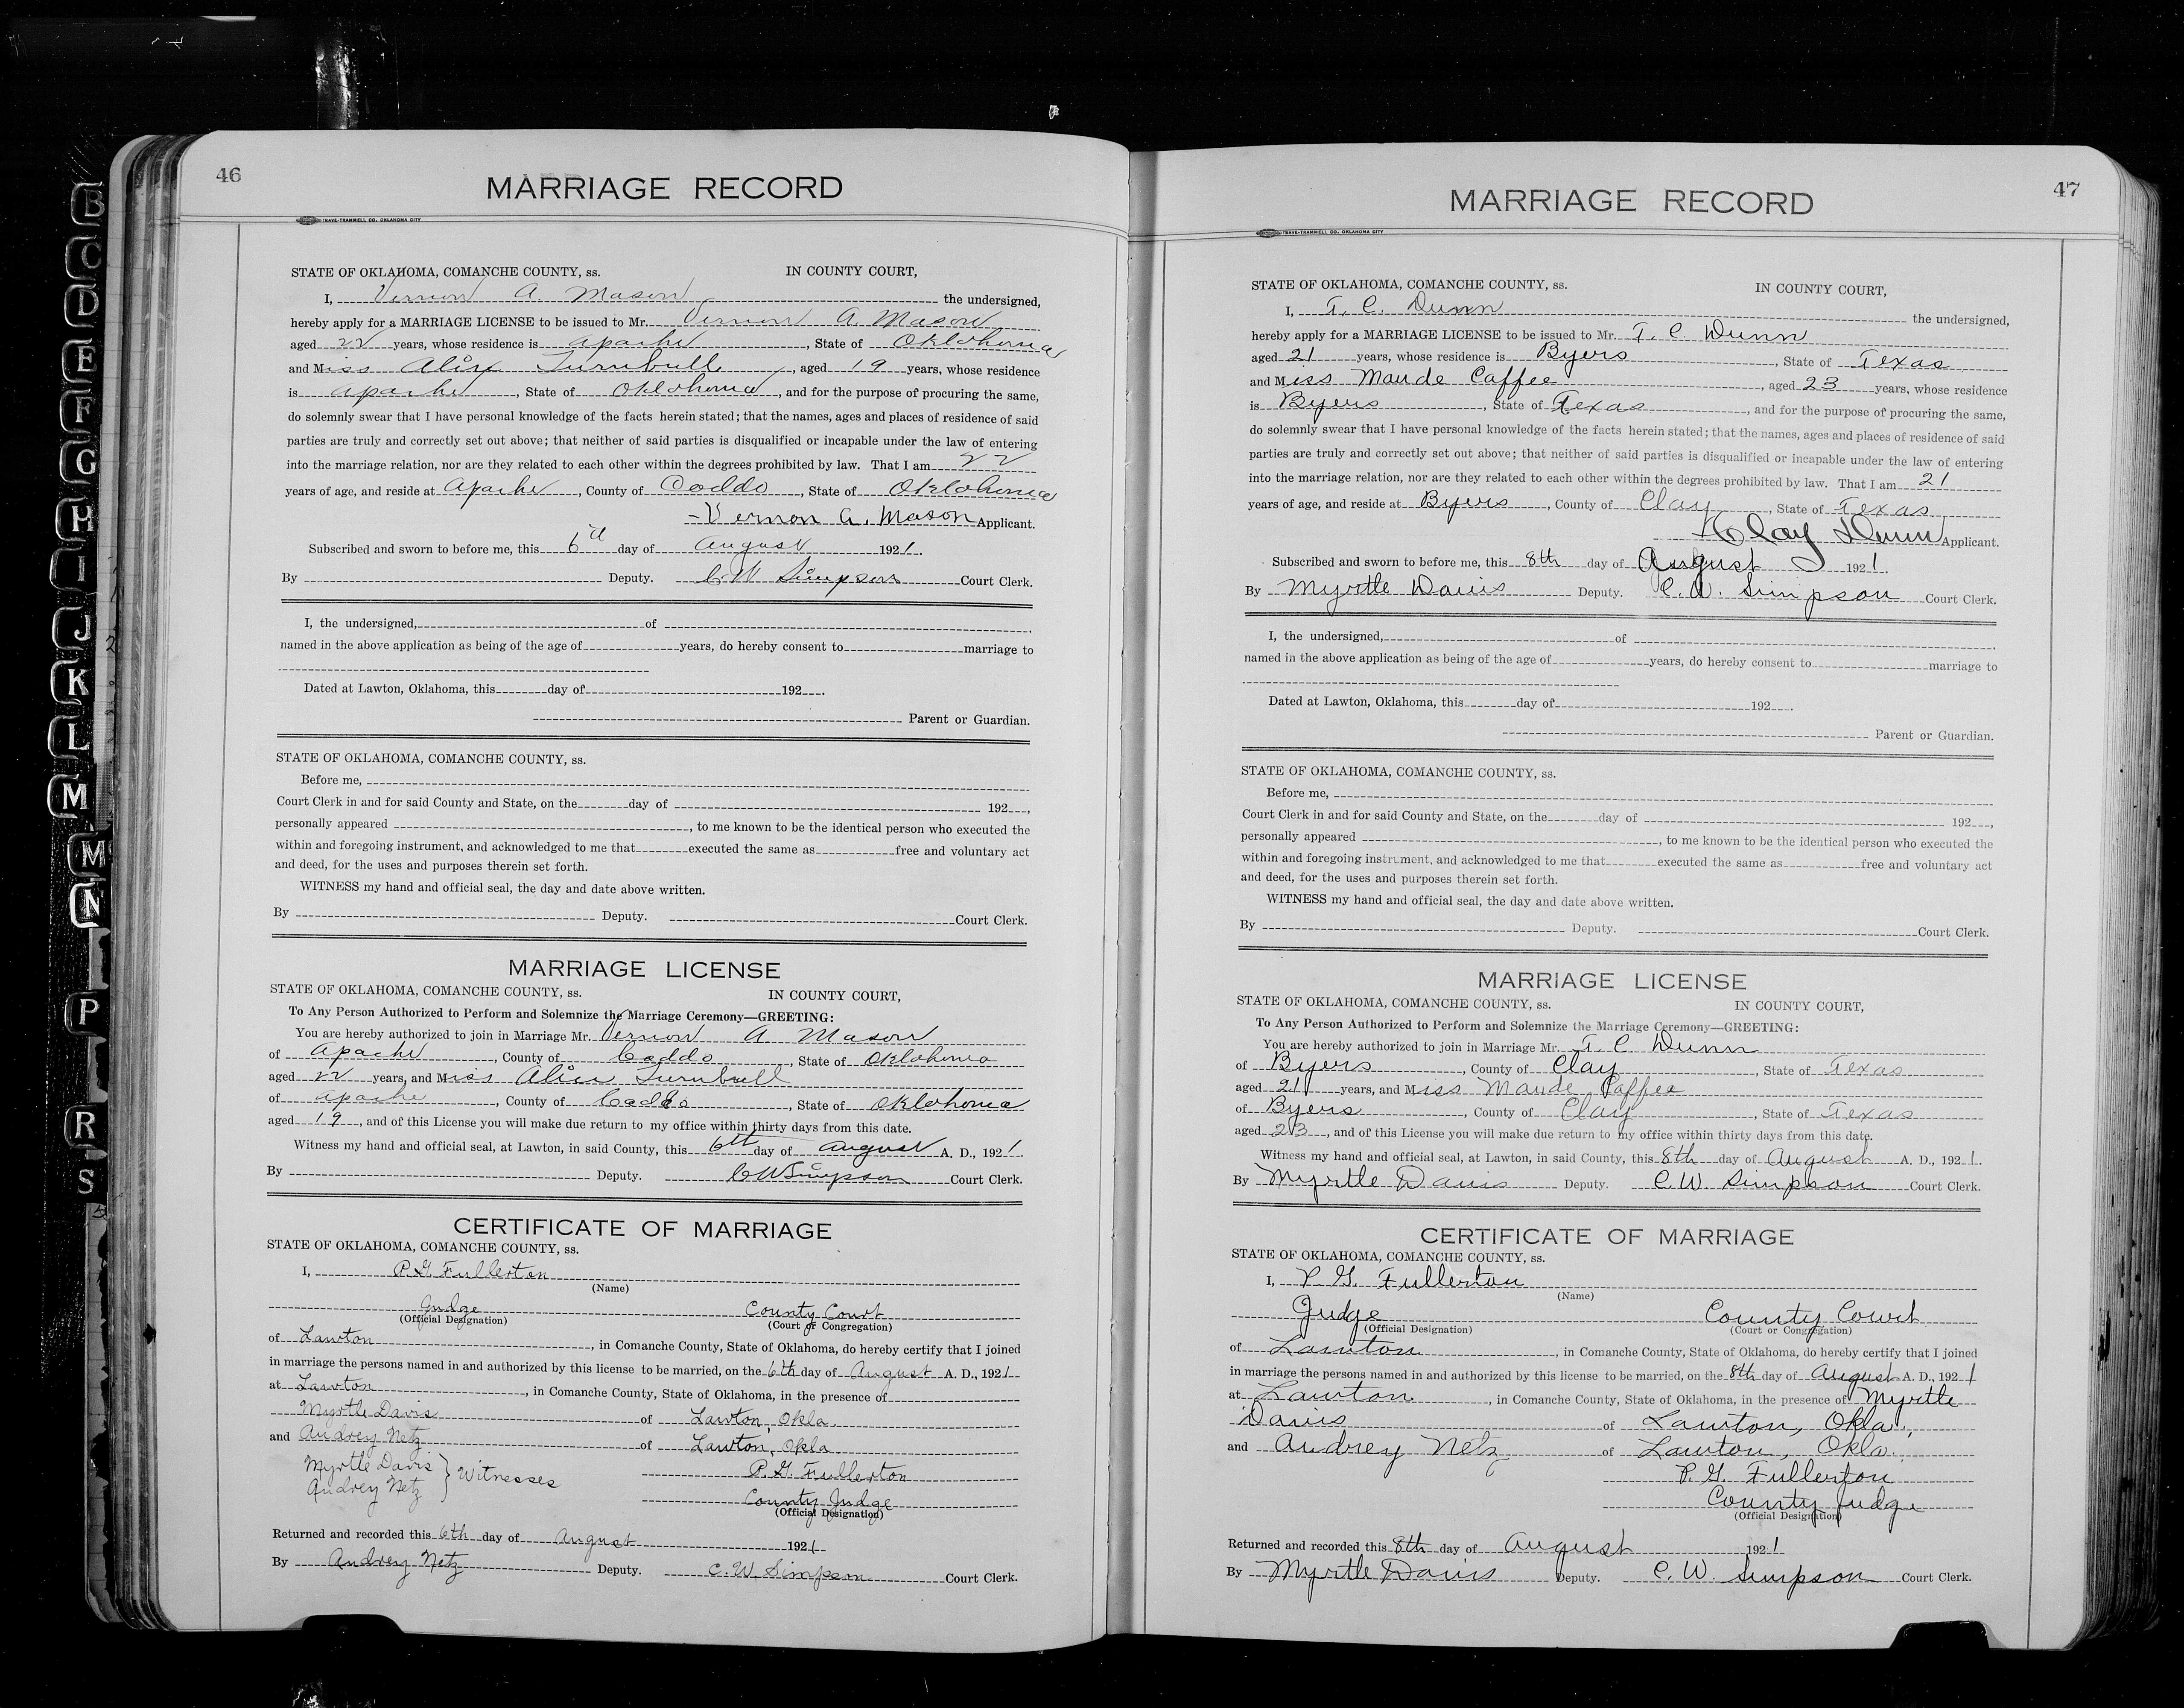 46
MARRIAGE RECORD
TRAVE-TRAMMELL CO. OKLAHOMA CITY
STATE OF OKLAHOMA, COMANCHE COUNTY, ss. IN COUNTY COURT,
I, Vernon A. Mason the undersigned,
hereby apply for a MARRIAGE LICENSE to be issued to Mr. Vernon A. Mason
aged 22 years, whose residence is Apache, State of Oklahoma
and Miss Alice Turnbull, aged 19 years, whose residence
is Apache, State of Oklahoma, and for the purpose of procuring the same,
do solemnly swear that I have personal knowledge of the facts herein stated; that the names, ages and places of residence of said
parties are truly and correctly set out above; that neither of said parties is disqualified or incapable under the law of entering
into the marriage relation, nor are they related to each other within the degrees prohibited by law. That I am 22
years of age, and reside at Apache, County of Caddo, State of Oklahoma
Vernon A. Mason Applicant.
Subscribed and sworn to before me, this 6th day of August 1921.
By Deputy. C W Simpson Court Clerk.
I, the undersigned, of
named in the above application as being of the age of years, do hereby consent to marriage to
Dated at Lawton, Oklahoma, this day of 192 .
Parent or Guardian.
STATE OF OKLAHOMA, COMANCHE COUNTY, ss.
Before me,
Court Clerk in and for said County and State, on the day of 192 ,
personally appeared , to me known to be the identical person who executed the
within and foregoing instrument, and acknowledged to me that executed the same as free and voluntary act
and deed, for the uses and purposes therein set forth.
WITNESS my hand and official seal, the day and date above written.
By Deputy. Court Clerk.
MARRIAGE LICENSE
STATE OF OKLAHOMA, COMANCHE COUNTY, ss. IN COUNTY COURT,
To Any Person Authorized to Perform and Solemnize the Marriage Ceremony—GREETING:
You are hereby authorized to join in Marriage Mr. Vernon A Mason
of Apache, County of Caddo, State of Oklahoma
aged 22 years, and Miss Alice Turnbull
of Apache, County of Caddo, State of Oklahoma
aged 19, and of this License you will make due return to my office within thirty days from this date.
Witness my hand and official seal, at Lawton, in said County, this 6th day of August A. D., 1921.
By Deputy. C W Simpson Court Clerk.
CERTIFICATE OF MARRIAGE
STATE OF OKLAHOMA, COMANCHE COUNTY, ss.
I, P. G. Fullerton
(Name)
Judge County Court
(Official Designation) (Court or Congregation)
of Lawton, in Comanche County, State of Oklahoma, do hereby certify that I joined
in marriage the persons named in and authorized by this license to be married, on the 6th day of August A. D., 1921
at Lawton, in Comanche County, State of Oklahoma, in the presence of
Myrtle Davis of Lawton, Okla.
and Audrey Netz of Lawton, Okla
Myrtle Davis } Witnesses P. G. Fullerton
Audrey Netz County Judge
(Official Designation)
Returned and recorded this 6th day of August 1921
By Audrey Netz Deputy. C. W. Simpson Court Clerk.
47
MARRIAGE RECORD
TRAVE-TRAMMELL CO. OKLAHOMA CITY
STATE OF OKLAHOMA, COMANCHE COUNTY, ss. IN COUNTY COURT,
I, T. C. Dunn the undersigned,
hereby apply for a MARRIAGE LICENSE to be issued to Mr. T. C Dunn
aged 21 years, whose residence is Byers, State of Texas
and Miss Maude Caffee, aged 23 years, whose residence
is Byers, State of Texas, and for the purpose of procuring the same,
do solemnly swear that I have personal knowledge of the facts herein stated; that the names, ages and places of residence of said
parties are truly and correctly set out above; that neither of said parties is disqualified or incapable under the law of entering
into the marriage relation, nor are they related to each other within the degrees prohibited by law. That I am 21
years of age, and reside at Byers, County of Clay, State of Texas
Clay Dunn Applicant.
Subscribed and sworn to before me, this 8th day of August 1921.
By Myrtle Davis Deputy. C. W. Simpson Court Clerk.
I, the undersigned, of
named in the above application as being of the age of years, do hereby consent to marriage to
Dated at Lawton, Oklahoma, this day of 192 .
Parent or Guardian.
STATE OF OKLAHOMA, COMANCHE COUNTY, ss.
Before me,
Court Clerk in and for said County and State, on the day of 192 ,
personally appeared , to me known to be the identical person who executed the
within and foregoing instrument, and acknowledged to me that executed the same as free and voluntary act
and deed, for the uses and purposes therein set forth.
WITNESS my hand and official seal, the day and date above written.
By Deputy. Court Clerk.
MARRIAGE LICENSE
STATE OF OKLAHOMA, COMANCHE COUNTY, ss. IN COUNTY COURT,
To Any Person Authorized to Perform and Solemnize the Marriage Ceremony—GREETING:
You are hereby authorized to join in Marriage Mr. T. C Dunn
of Byers, County of Clay, State of Texas
aged 21 years, and Miss Maude Caffee
of Byers, County of Clay, State of Texas
aged 23, and of this License you will make due return to my office within thirty days from this date.
Witness my hand and official seal, at Lawton, in said County, this 8th day of August A. D., 1921.
By Myrtle Davis Deputy. C. W. Simpson Court Clerk.
CERTIFICATE OF MARRIAGE
STATE OF OKLAHOMA, COMANCHE COUNTY, ss.
I, P. G. Fullerton
(Name)
Judge County Court
(Official Designation) (Court or Congregation)
of Lawton, in Comanche County, State of Oklahoma, do hereby certify that I joined
in marriage the persons named in and authorized by this license to be married, on the 8th day of August A. D., 1921
at Lawton, in Comanche County, State of Oklahoma, in the presence of Myrtle
Davis of Lawton, Okla.,
and Audrey Netz of Lawton, Okla.
P. G. Fullerton
County Judge
(Official Designation)
Returned and recorded this 8th day of August 1921
By Myrtle Davis Deputy. C. W. Simpson Court Clerk.
B
C
D
E
F
G
H
I
J
K
L
M
M
N
P
R
S